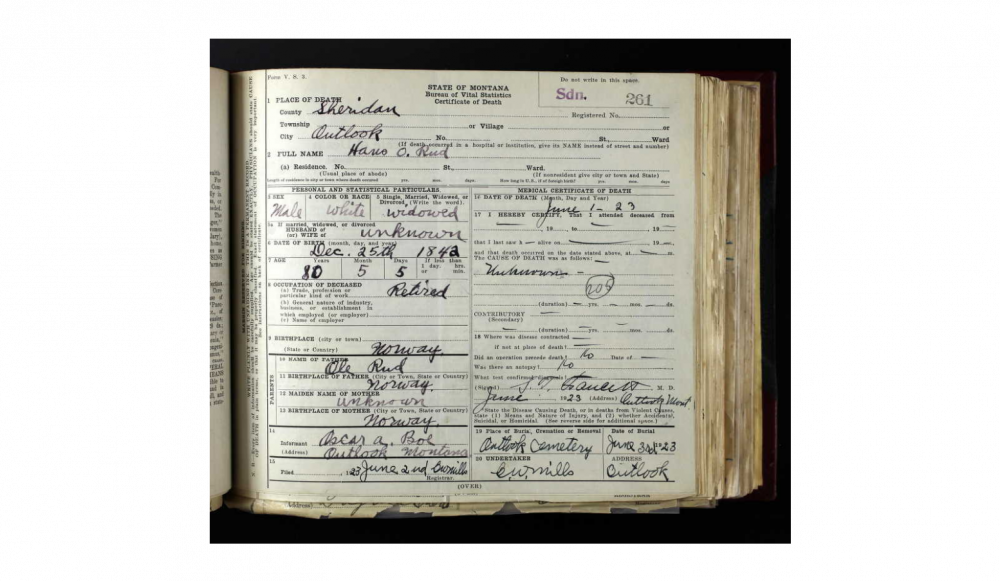 Form V. S. 3.
STATE OF MONTANA
Bureau of Vital Statistics
Certificate of Death
Do not write in this space.
Sdn. 261
Registered No.
1 PLACE OF DEATH
County Sheridan
Township or Village or
City Outlook No. St., Ward
(If death occurred in a hospital or institution, give its NAME instead of street and number)
2 FULL NAME Hans O. Rud
(a) Residence. No. St., Ward.
(Usual place of abode) (If nonresident give city or town and State)
Length of residence in city or town where death occurred yrs. mos. days. How long in U.S., if of foreign birth? yrs. mos. days.
PERSONAL AND STATISTICAL PARTICULARS.
3 SEX 4 COLOR OR RACE 5 Single, Married, Widowed, or
Divorced, (Write the word).
Male white widowed
5a If married, widowed, or divorced
HUSBAND of
(or) WIFE of unknown
6 DATE OF BIRTH (month, day, and year)
Dec. 25th 1842
7 AGE Years Month Days If less than
1 day. hrs.
or min.
80 5 5
8 OCCUPATION OF DECEASED
(a) Trade, profession or
particular kind of work Retired
(b) General nature of industry,
business, or establishment in
which employed (or employer)
(c) Name of employer
9 BIRTHPLACE (city or town)
(State or Country) Norway.
PARENTS
10 NAME OF FATHER
Ole Rud
11 BIRTHPLACE OF FATHER (City or Town, State or Country)
Norway.
12 MAIDEN NAME OF MOTHER
Unknown
13 BIRTHPLACE OF MOTHER (City or Town, State or Country)
Norway.
14
Informant Oscar A. Boe
(Address) Outlook Montana
15
Filed , 1923 June 2nd C.W. Mills
Registrar.
MEDICAL CERTIFICATE OF DEATH
16 DATE OF DEATH (Month, Day and Year)
June 1 - 23
17 I HEREBY CERTIFY, That I attended deceased from
19 , to , 19
that I last saw h alive on , 19
and that death occurred on the date stated above, at M.
The CAUSE OF DEATH was as follows:
Unknown -
205
(duration) yrs. mos. ds.
CONTRIBUTORY
(Secondary)
(duration) yrs. mos. ds.
18 Where was disease contracted
if not at place of death?
Did an operation precede death? No Date of
Was there an autopsy? No
What test confirmed diagnosis?
(Signed) M. D.
June 1923 (Address) Outlook Mont.
State the Disease Causing Death, or in deaths from Violent Causes,
State (1) Means and Nature of Injury, and (2) whether Accidental,
Suicidal, or Homicidal. (See reverse side for additional space.)
19 Place of Burial, Cremation or Removal Date of Burial
Outlook Cemetery June 3rd 23
20 UNDERTAKER ADDRESS
C.W. Mills Outlook
(OVER)
(Address)